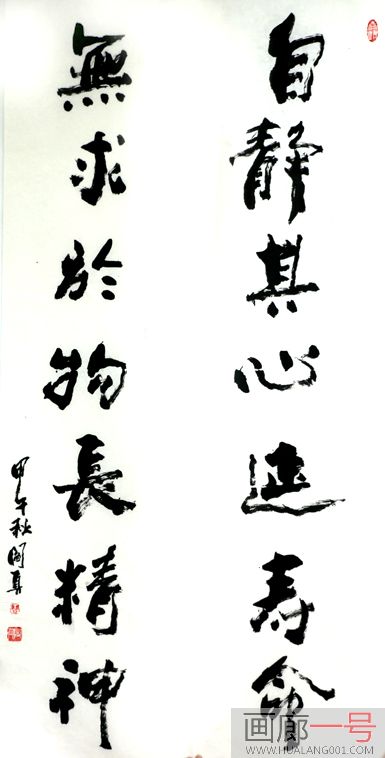 自静其心延寿命
無求於物長精神
甲午秋
画廊一号
WWW.HUALANG001.COM